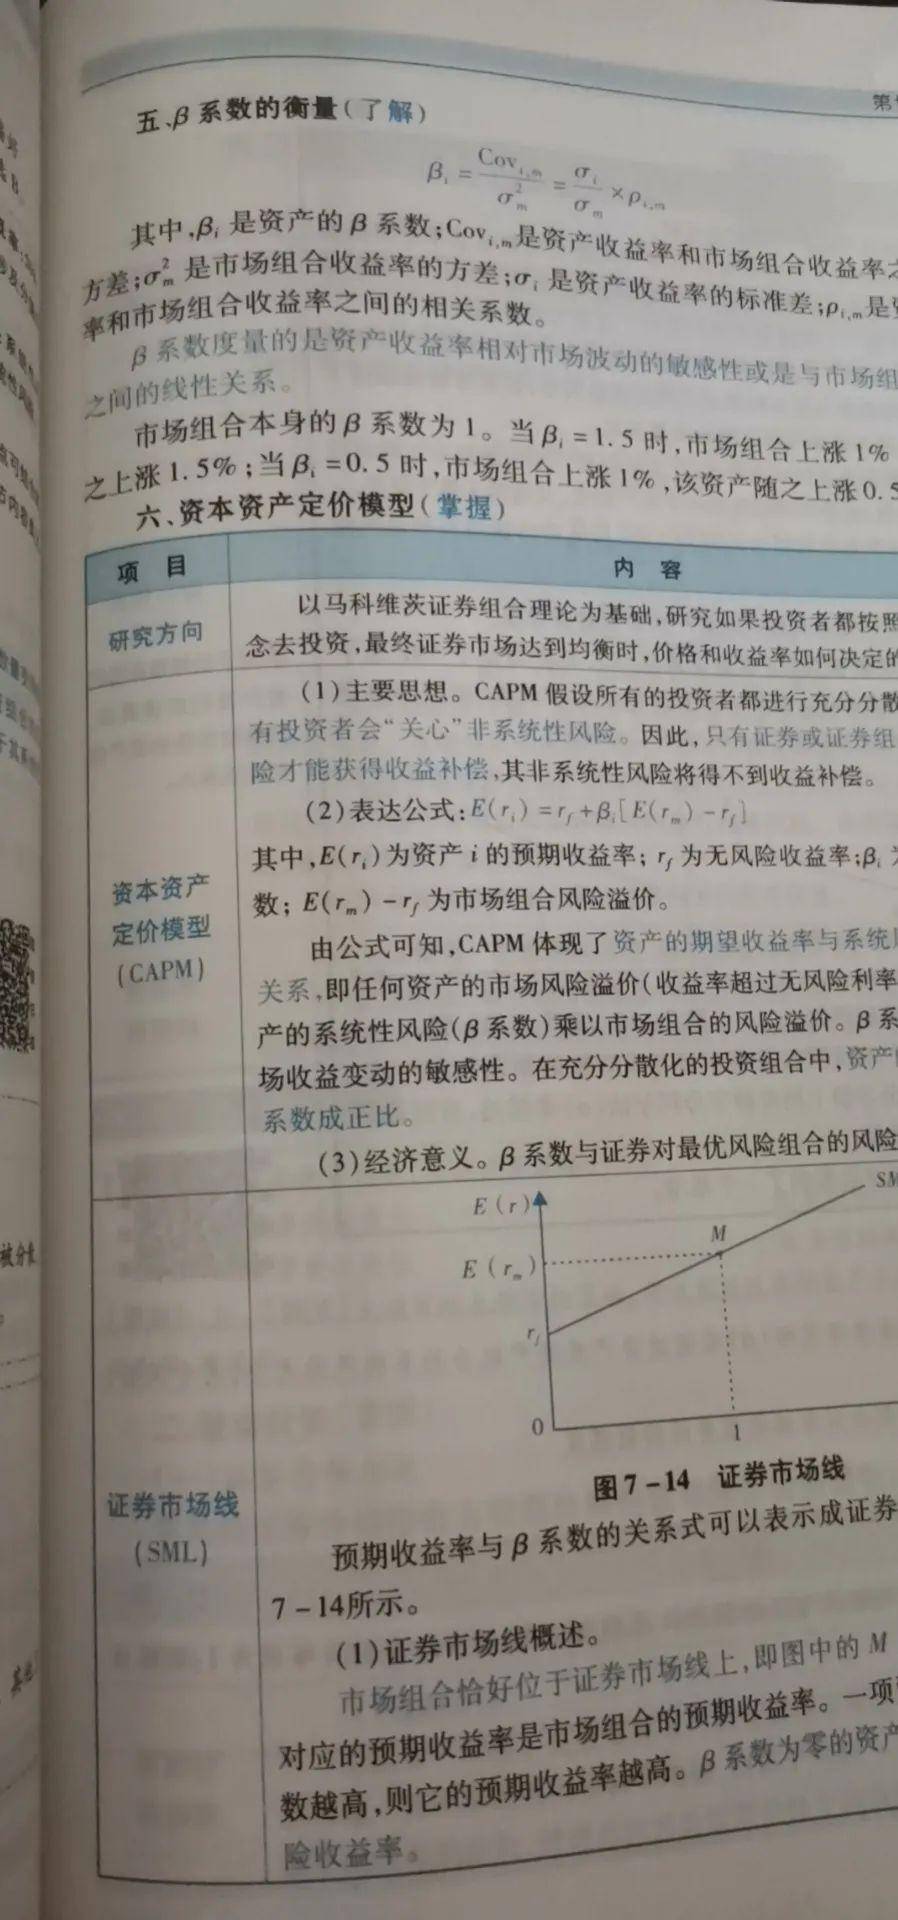 第
五、β系数的衡量(了解)
βᵢ = Covᵢ,ₘ / σ²ₘ = σᵢ / σₘ × ρᵢ,ₘ
其中,βᵢ是资产的β系数;Covᵢ,ₘ是资产收益率和市场组合收益率之
方差;σ²ₘ是市场组合收益率的方差;σᵢ是资产收益率的标准差;ρᵢ,ₘ是
率和市场组合收益率之间的相关系数。
β系数度量的是资产收益率相对市场波动的敏感性或是与市场组
之间的线性关系。
市场组合本身的β系数为1。当βᵢ=1.5时,市场组合上涨1%
之上涨1.5%;当βᵢ=0.5时,市场组合上涨1%,该资产随之上涨0.5
六、资本资产定价模型(掌握)
项 目 内 容
研究方向
以马科维茨证券组合理论为基础,研究如果投资者都按照
念去投资,最终证券市场达到均衡时,价格和收益率如何决定的
资本资产
定价模型
(CAPM)
(1)主要思想。CAPM假设所有的投资者都进行充分分散
有投资者会“关心”非系统性风险。因此,只有证券或证券组
险才能获得收益补偿,其非系统性风险将得不到收益补偿。
(2)表达公式:E(rᵢ)=r_f+βᵢ[E(rₘ)-r_f]
其中,E(rᵢ)为资产i的预期收益率;r_f为无风险收益率;βᵢ
数;E(rₘ)-r_f为市场组合风险溢价。
由公式可知,CAPM体现了资产的期望收益率与系统
关系,即任何资产的市场风险溢价(收益率超过无风险利率
产的系统性风险(β系数)乘以市场组合的风险溢价。β系
场收益变动的敏感性。在充分分散化的投资组合中,资产
系数成正比。
(3)经济意义。β系数与证券对最优风险组合的风险
证券市场线
(SML)
E(r)
SM
M
E(rₘ)
r_f
0
1
图7-14 证券市场线
预期收益率与β系数的关系式可以表示成证券
7-14所示。
(1)证券市场线概述。
市场组合恰好位于证券市场线上,即图中的M
对应的预期收益率是市场组合的预期收益率。一项
数越高,则它的预期收益率越高。β系数为零的资产
险收益率。
被分散